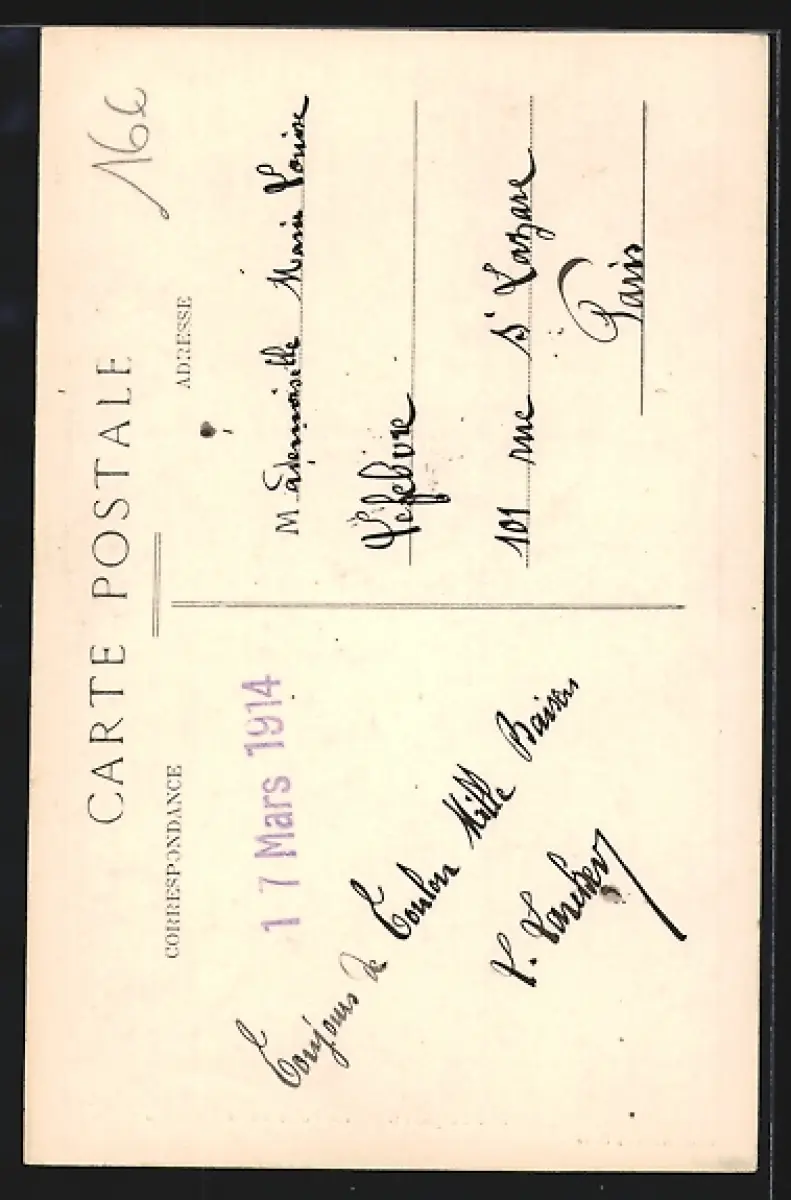 CARTE POSTALE
CORRESPONDANCE
ADRESSE
166
17 Mars 1914
Toujours de Toulon Mille Baisers
M ademoiselle Marie Louise
Lefebvre
101 rue St Lazare
Paris